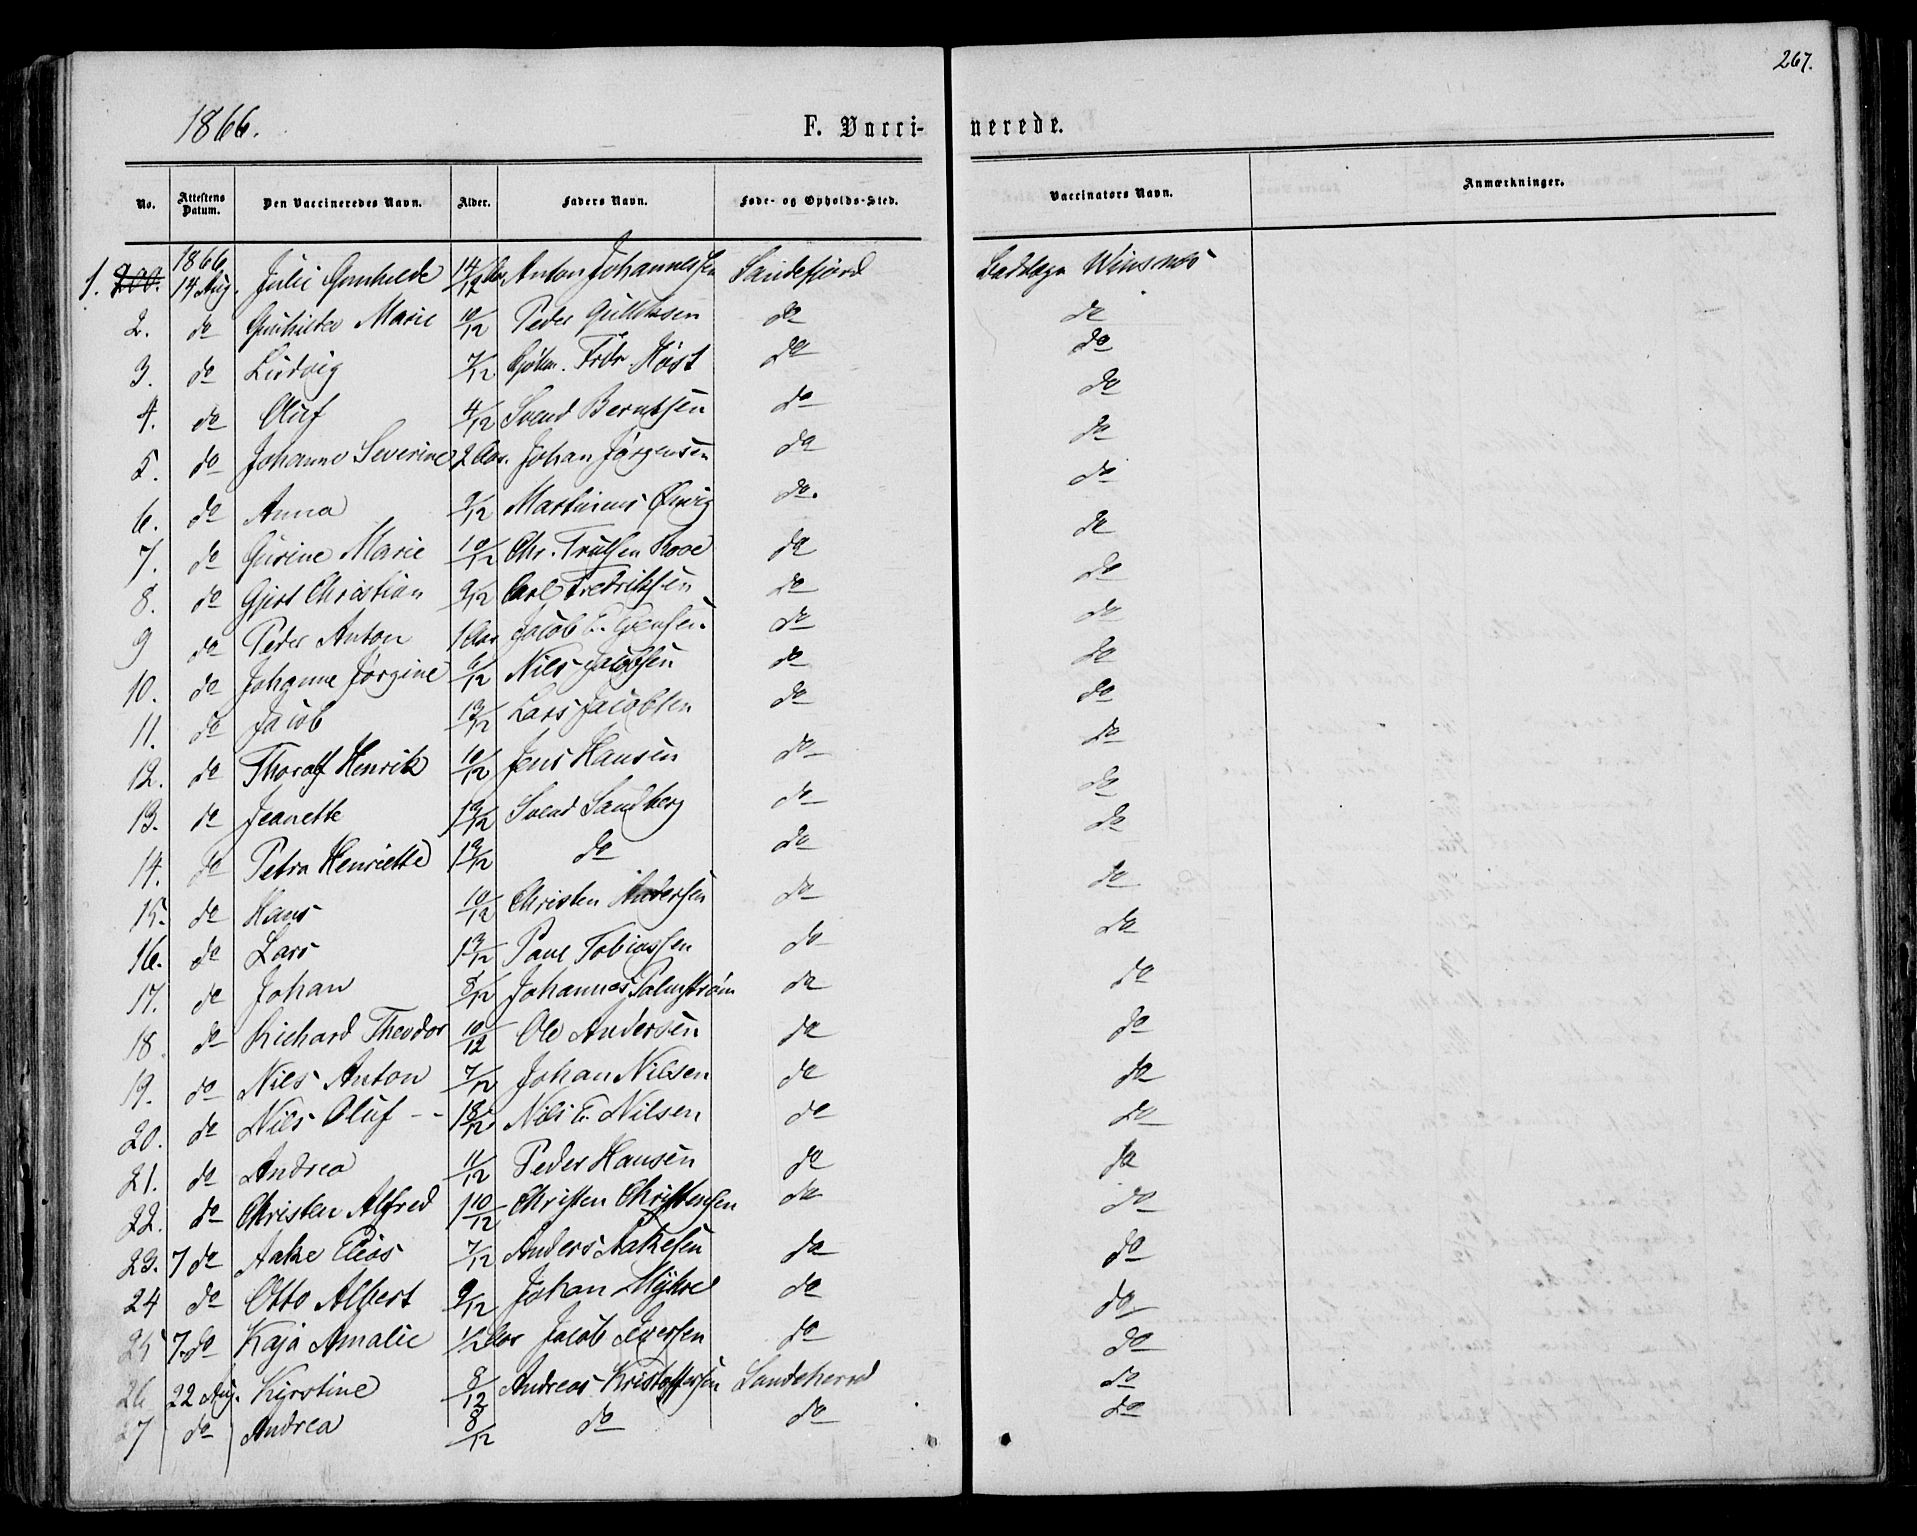 267.
1866.
F. Vaccinerede.
No. | Attestens Datum. | Den Vaccineredes Navn. | Alder. | Faders Navn. | Føde- og Opholds-Sted. | Vaccinators Navn. | Anmærkninger.
1. 200. 1866 14 Aug. Julie Gunhilde 1 4/12 Aar Anton Johannessen Sandefjord Badelæge Winsnes
2. do Gunhilde Marie 10/12 Peder Gulliksen do do
3. do Ludvig 7/12 Fredr. Høst do do
4. do Oluf 4/12 Svend Berntsen do do
5. do Johanne Severine 2 Aar. Johan Jørgensen do do
6. do Anna 9/12 Martinius do. do
7. do Gurine Marie 10/12 Chr. Trulsen Roae do do
8. do Gjert Christian 9/12 Carl Fredriksen do do
9 do Peder Anton 1 Aar Jacob E. Jensen. do do
10. do Johanne Jørgine 6/12 Nils Jacobsen do do
11. do Jacob 13/12 Lars Jacobsen do do
12. do Thoralf Henrik 10/12 Jens Hansen do do
13. do Jeanette 1 9/12 Svend Sandberg do do
14. do Petra Henriette 1 9/12 do do do
15. do Hans 10/12 Christen Andersen do do
16. do Lars 1 3/12 Paul Tobiassen do do
17. do Johan 8/12 Johannes Palmstrøm do do
18. do Richard Theodor 10/12 Ole Andersen do do
19. do Nils Anton 7/12 Johan Nilsen do do
20. do Nils Oluf - - 18/12 Nils E. Nilsen do do
21. do Andrea 11/12 Peder Hansen do do
22. do Christen Alfred 1 10/12 Christen Christensen do do
23. 7 do Aake Elias 7/12 Anders Aakesen do do
24 do Otto Albert 9/12 Johan Myhre do do
25 7 do Kaja Amalie 1/2 Aar Jacob Iversen do do
26 22 Aug. Kirstine 8/12 Andreas Kristoffersen Sandeherred do
27 do Andrea 8/12 do do do